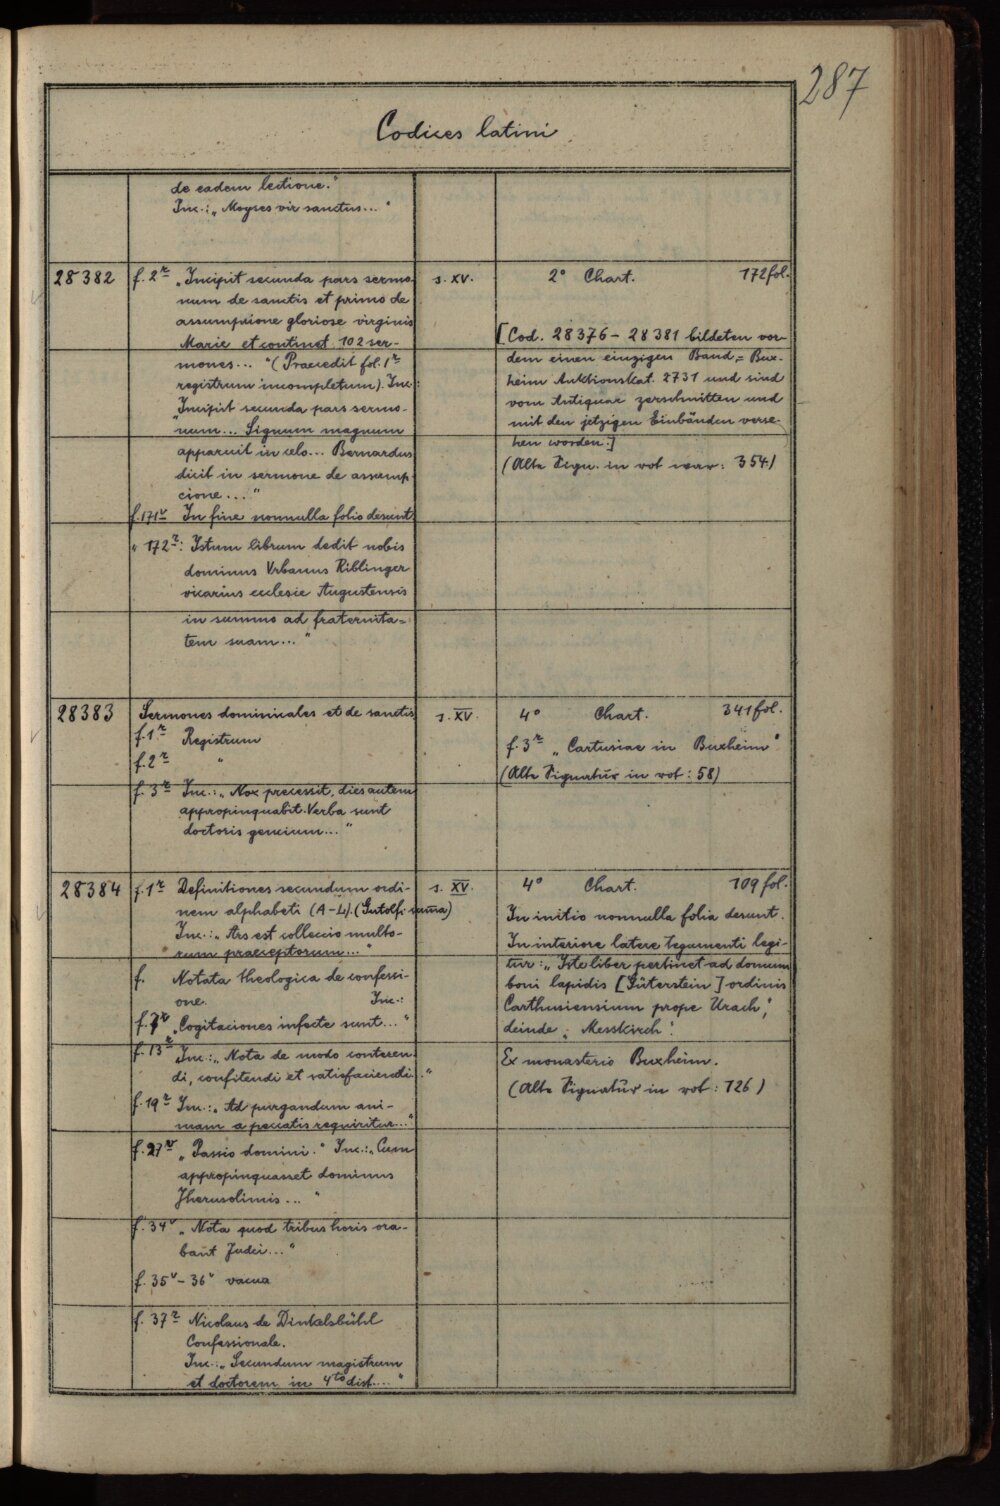 287
Codices latini
de eadem lectione."
Inc.: „Moyses vir sanctus..."
28382
f. 2r „Incipit secunda pars sermo-
num de sanctis et primo de
assumpcione gloriose virginis
Marie et continet 102 ser-
mones... "(Praecedit fol. 1r
registrum incompletum). Inc.:
„Incipit secunda pars sermo-
num... Signum magnum
apparuit in celo... Bernardus
dicit in sermone de assump
cione..."
f. 171v In fine nonnulla folia desunt.
" 172r: Istum librum dedit nobis
dominus Vrbanus Riblinger
vicarius ecclesie Augustensis
in summo ad fraternita=
tem suam..."
s. XV.
2° Chart. 172 fol.
[Cod. 28376 - 28381 bildeten vor-
dem einen einzigen Band = Bux-
heim Auktionskat. 2731 und sind
vom Antiquar zerschnitten und
mit den jetzigen Einbänden verse-
hen worden.]
(Alte Sign. in rot war: 354.)
28383
Sermones dominicales et de sanctis
f. 1r Registrum
f. 2r "
f. 3r Inc.: „Nox precessit, dies autem
appropinquabit. Verba sunt
doctoris gencium..."
s. XV.
4° Chart. 341 fol.
f. 3r „Cartusiae in Buxheim"
(Alte Signatur in rot: 58)
28384
f. 1r Definitiones secundum ordi-
nem alphabeti (A-L). (Gutolfi summa)
Inc.: „Ars est colleccio multo-
rum praeceptorum..."
f. Notata theologica de confessi-
one. Inc.:
f. 7v „Cogitaciones infecte sunt..."
f. 13r Inc.: „Nota de modo conteren
di, confitendi et satisfaciendi..."
f. 19r Inc.: „Ad purgandum ani-
mam a peccatis requiritur..."
f. 27v „Passio domini." Inc.: „Cum
appropinquasset dominus
Jherusolimis..."
f. 34v „Nota quod tribus horis ora-
bant Judei..."
f. 35v - 36v vacua
f. 37r Nicolaus de Dinkelsbühl
Confessionale.
Inc.: „Secundum magistrum
et doctorem in 4to dist...."
s. XV.
4° Chart. 109 fol.
In initio nonnulla folia desunt.
In interiore latere tegumenti legi-
tur: „Iste liber pertinet ad domum
boni lapidis [Güterstein] ordinis
Carthusiensium prope Urach",
deinde „Messkirch".
Ex monasterio Buxheim.
(Alte Signatur in rot: 126)